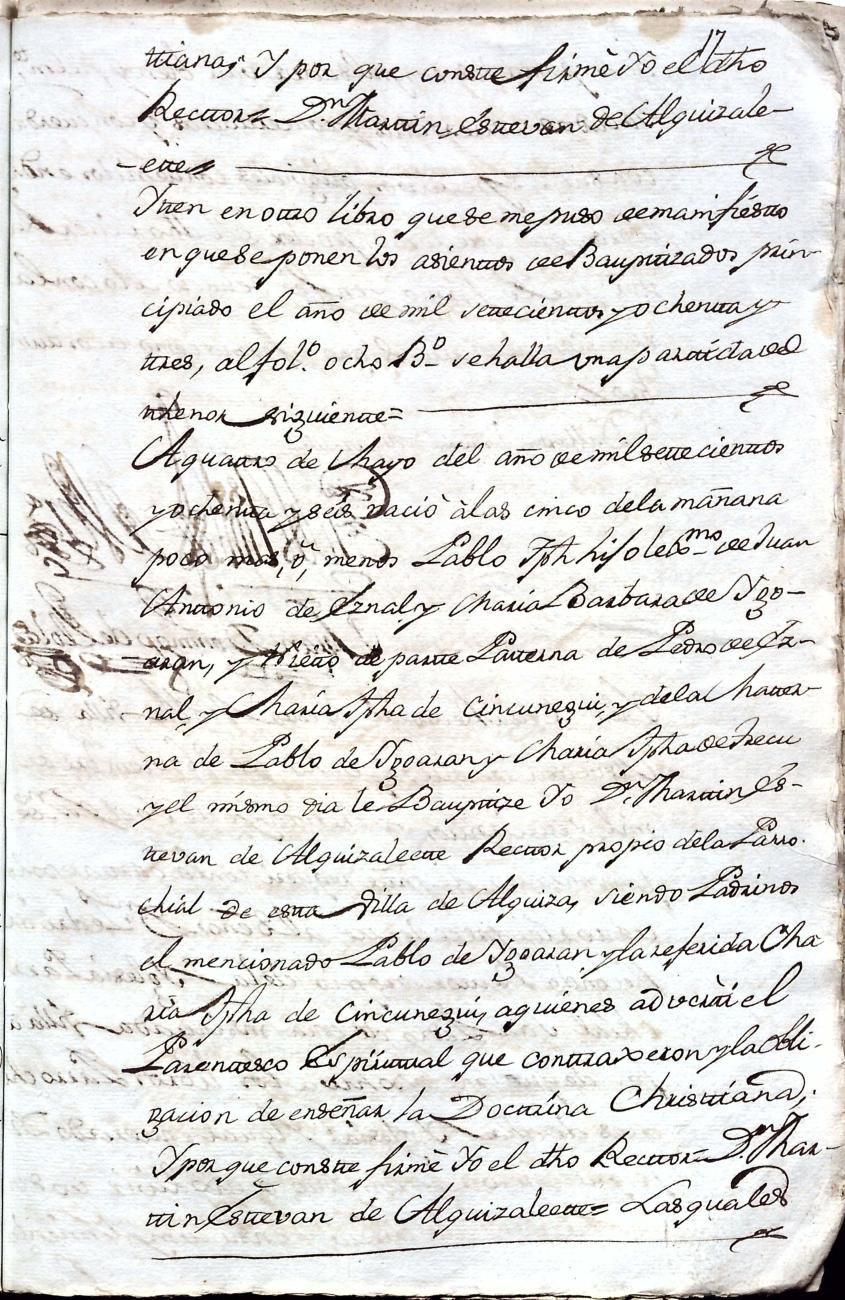 17
ttiana, Y por que constte firmè Yo el dho
Recttor= Dn. Marttin Esttevan de Alquizale-
ette=
Ytten en ottro libro que se me puso de manifiestto
en que se ponen los asienttos de Bauptizados prin-
cipiado el año de mil settecienttos y ochentta y
ttres, al fol.o ocho B.o se halla una partida del
tthenor siguientte=
A quattro de Mayo del año de mil settecienttos
y ochentta y seis naciò à las cinco de la mañana
poco mas, ò menos Pablo Jph hijo lexmo. de Juan
Anttonio de Eznal, y Maria Barbara de Ygo-
aran, y Nietto de partte Patterna de Pedro de Ez-
nal, y Maria Jpha de Cincunegui, y de la Matter-
na de Pablo de Ygoaran y Maria Jpha de Irecu
y el mismo dia le Bauptize Yo Dn. Marttin Es-
ttevan de Alquizaleette Recttor propio de la Parro-
chial de estta Villa de Alquiza, siendo Padrinos
el mencionado Pablo de Ygoaran y la referida Ma
ria Jpha de Cincunegui, a quienes advertti el
Parenttesco Espirittual que conttraxeron y la obli-
gacion de enseñar la Docttrina Christtiana;
Y por que constte firmè Yo el dho Recttor= Dn. Mar-
ttin Esttevan de Alquizaleette= Las quales